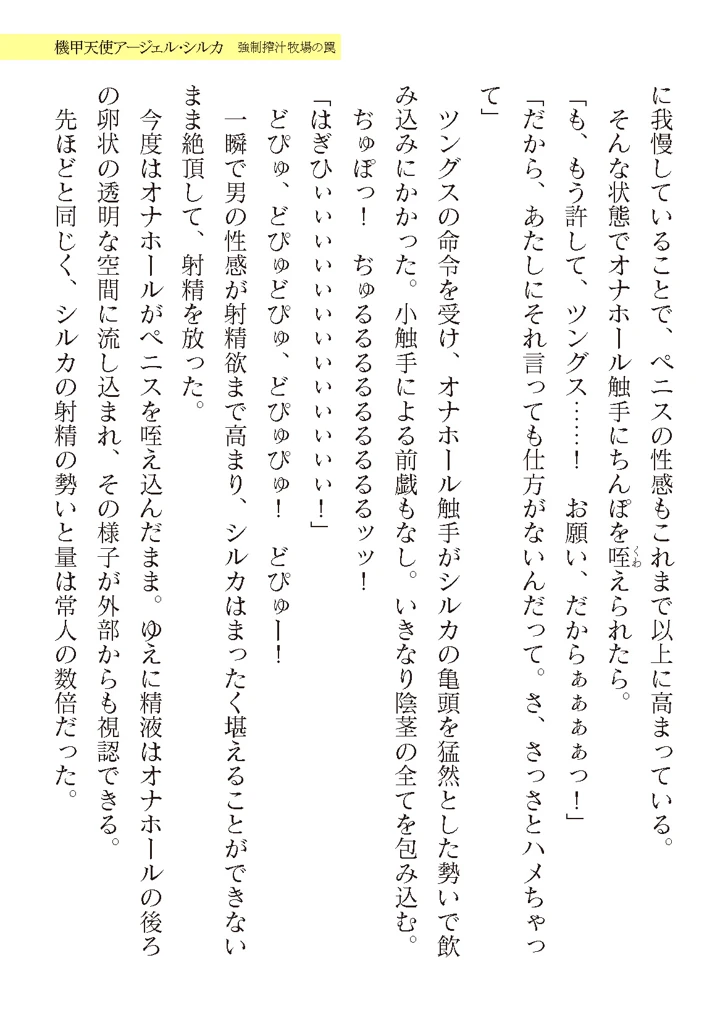 機甲天使アージェル・シルカ　強制搾汁牧場の罠
に我慢していることで、ペニスの性感もこれまで以上に高まっている。
そんな状態でオナホール触手にちんぽを咥えられたら。
くわ
「も、もう許して、ツングス……！　お願い、だからぁぁぁぁっ！」
「だから、あたしにそれ言っても仕方がないんだって。さ、さっさとハメちゃっ
て」
ツングスの命令を受け、オナホール触手がシルカの亀頭を猛然とした勢いで飲
み込みにかかった。小触手による前戯もなし。いきなり陰茎の全てを包み込む。
ぢゅぽっ！　ぢゅるるるるるるるるるッッ！
「はぎひぃぃぃぃぃぃぃぃぃぃぃぃぃ！」
どぴゅ、どぴゅどぴゅ、どぴゅぴゅ！　どぴゅー！
一瞬で男の性感が射精欲まで高まり、シルカはまったく堪えることができない
まま絶頂して、射精を放った。
今度はオナホールがペニスを咥え込んだまま。ゆえに精液はオナホールの後ろ
の卵状の透明な空間に流し込まれ、その様子が外部からも視認できる。
先ほどと同じく、シルカの射精の勢いと量は常人の数倍だった。